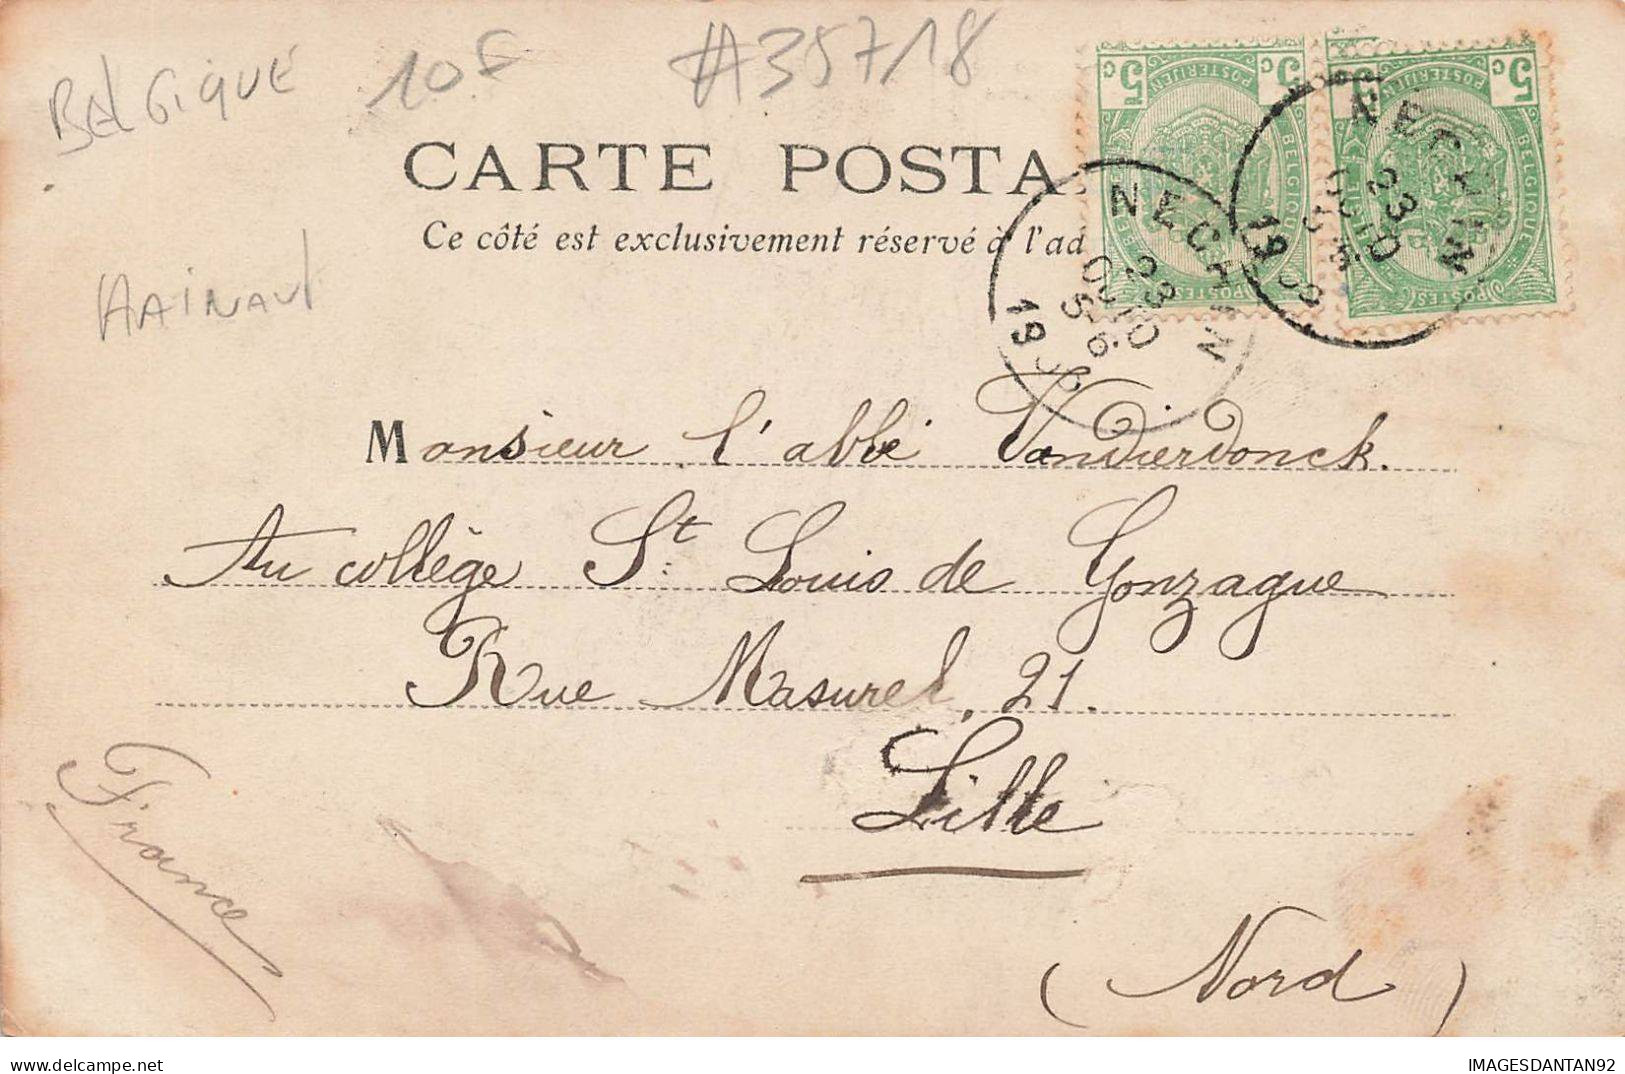 BELGIQUE 10F #35718
CARTE POSTA
Ce côté est exclusivement réservé à l'ad
HAINAUT
5c 5c
POSTERIJEN
BELGIQUE
POSTES
5c 5c
POSTERIJEN
BELGIQUE
POSTES
NECHIN
23
OCTO
5-6
NECHIN
23
OCTO
Monsieur l'abbé Vandierdonck.
Au collège St Louis de Gonzague
Rue Masurel, 21.
Lille
France
(Nord)
IMAGESDANTAN92
delcampe.net